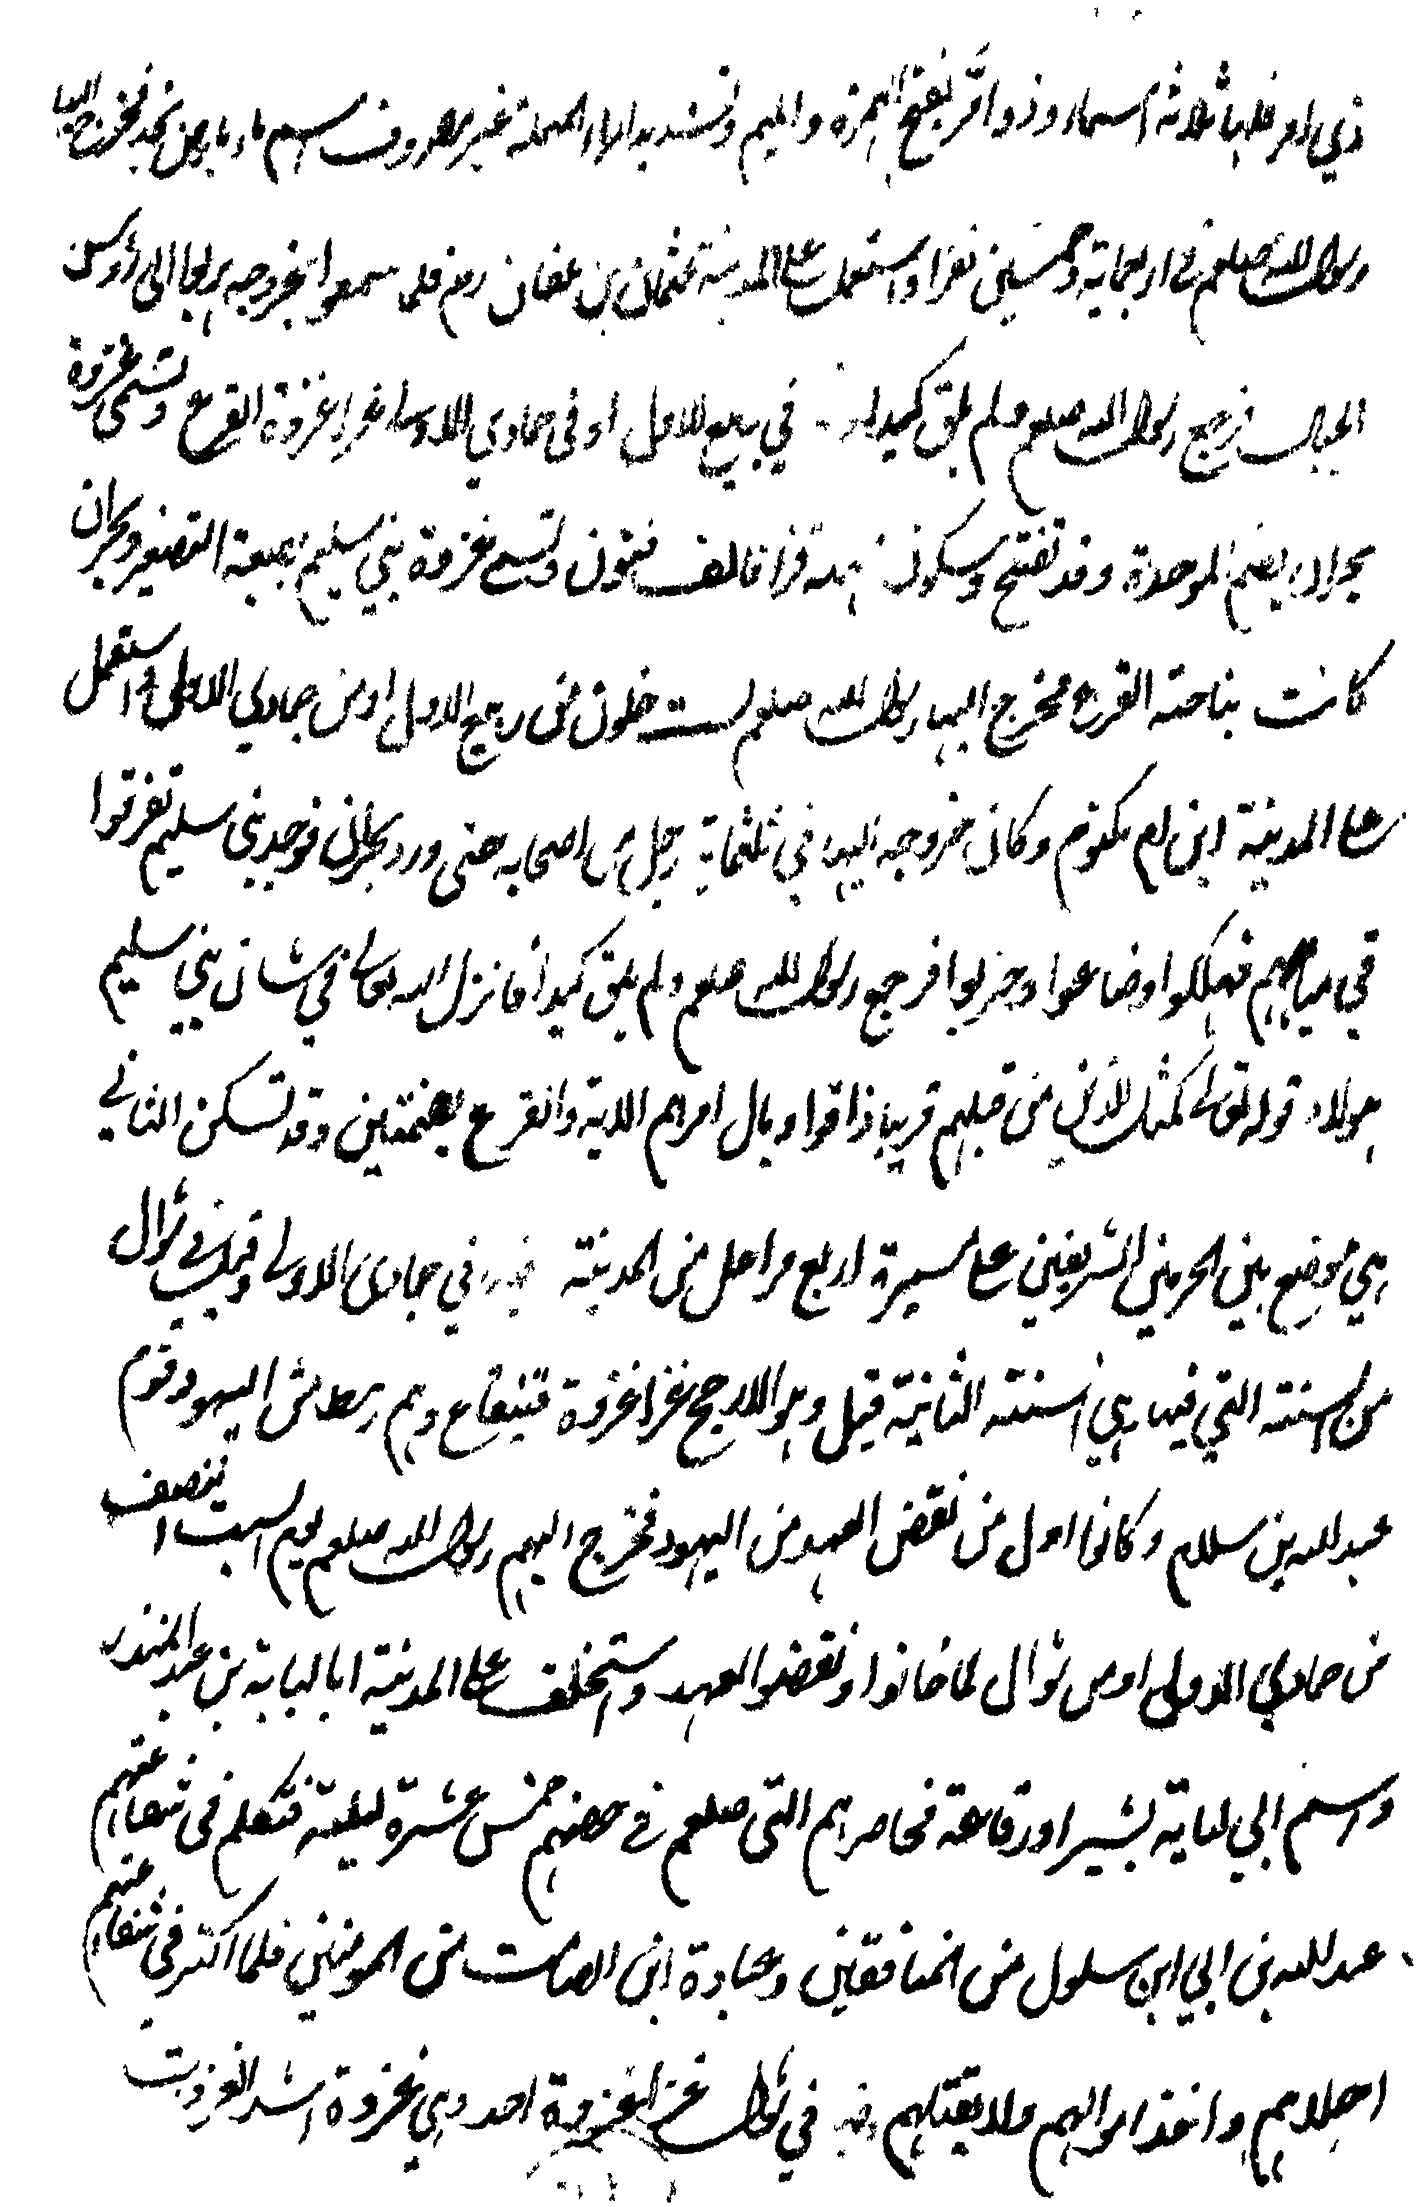 ذي امر فلها ثلاثة اسماء وذو امَّر بفتح الهمزة والميم وتشديد الراء المهملة غير مصروف اسم ماء بارض نجد فخرج اليها
رسول الله صلعم في اربعماية وخمسين نفرا واستعمل على المدينة عثمان بن عفان رضه فلما سمعوا بخروجه هربوا الى رؤس
الجبال فرجع رسول الله صلعم ولم يلق كيدا وفي ربيع الاول او في جمادي الاولى غزا غزوة الفرع وتسمى غزوة
بحران بضم الموحدة وقد تفتح وسكون فراء فالف فنون وتسمى غزوة بني سليم بصيغة التصغير وبحران
كانت بناحية الفرع فخرج اليها رسول الله صلعم لست خلون من ربيع الاول او من جمادي الاولى واستعمل
على المدينة ابن ام مكتوم وكان خروجه اليها في ثلثماية رجل من اصحابه حتى ورد بحران فوجد بني سليم تفرقوا
في مياههم فهلكوا وضاعوا وخربوا فرجع رسول الله صلعم ولم يلق كيدا فانزل الله تعالى في شان بني سليم
هولاء قوله تعالى كمثل الذين من قبلهم قريبا ذاقوا وبال امرهم الاية والفرع بضمتين وقد تسكن الثاني
هي موضع بين الحرمين الشريفين على مسيرة اربع مراحل من المدينة وفي جمادى الاولى وقيل في شوال
من السنة التي فيها هي السنة الثانية قيل وهو الارجح غزا غزوة قينقاع وهم رهط من اليهود قوم
عبد الله بن سلام وكانوا اول من نقض العهد من اليهود فخرج اليهم رسول الله صلعم يوم السبت النصف
من جمادي الاولى او من شوال لما خانوا ونقضوا العهد واستخلف على المدينة ابا لبابة بن عبد المنذر
واسم ابي لبابة بشير او رفاعة فحاصرهم النبي صلعم في حصنهم خمس عشرة ليلة فتكلم في شفاعتهم
عبد الله بن ابي ابن سلول من المنافقين وعبادة ابن الصامت من المومنين فلما اكثر في شفاعتهم
اجلاهم واخذ اموالهم ولا يقتلهم وفي شوال غزا غزوة احد وهي غزوة اشد الغزوات